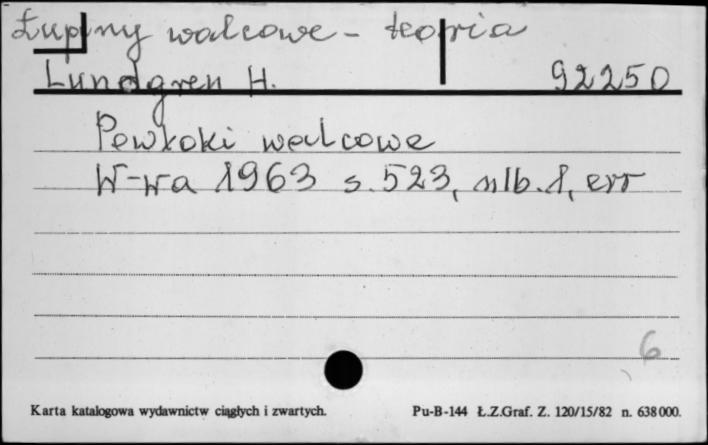 Łupiny walcowe - teoria
Lundgren H. 92250
Powłoki walcowe
W-wa 1963 s. 523, nlb. 1, err
6
Karta katalogowa wydawnictw ciągłych i zwartych. Pu-B-144 Ł.Z.Graf. Z. 120/15/82 n. 638000.